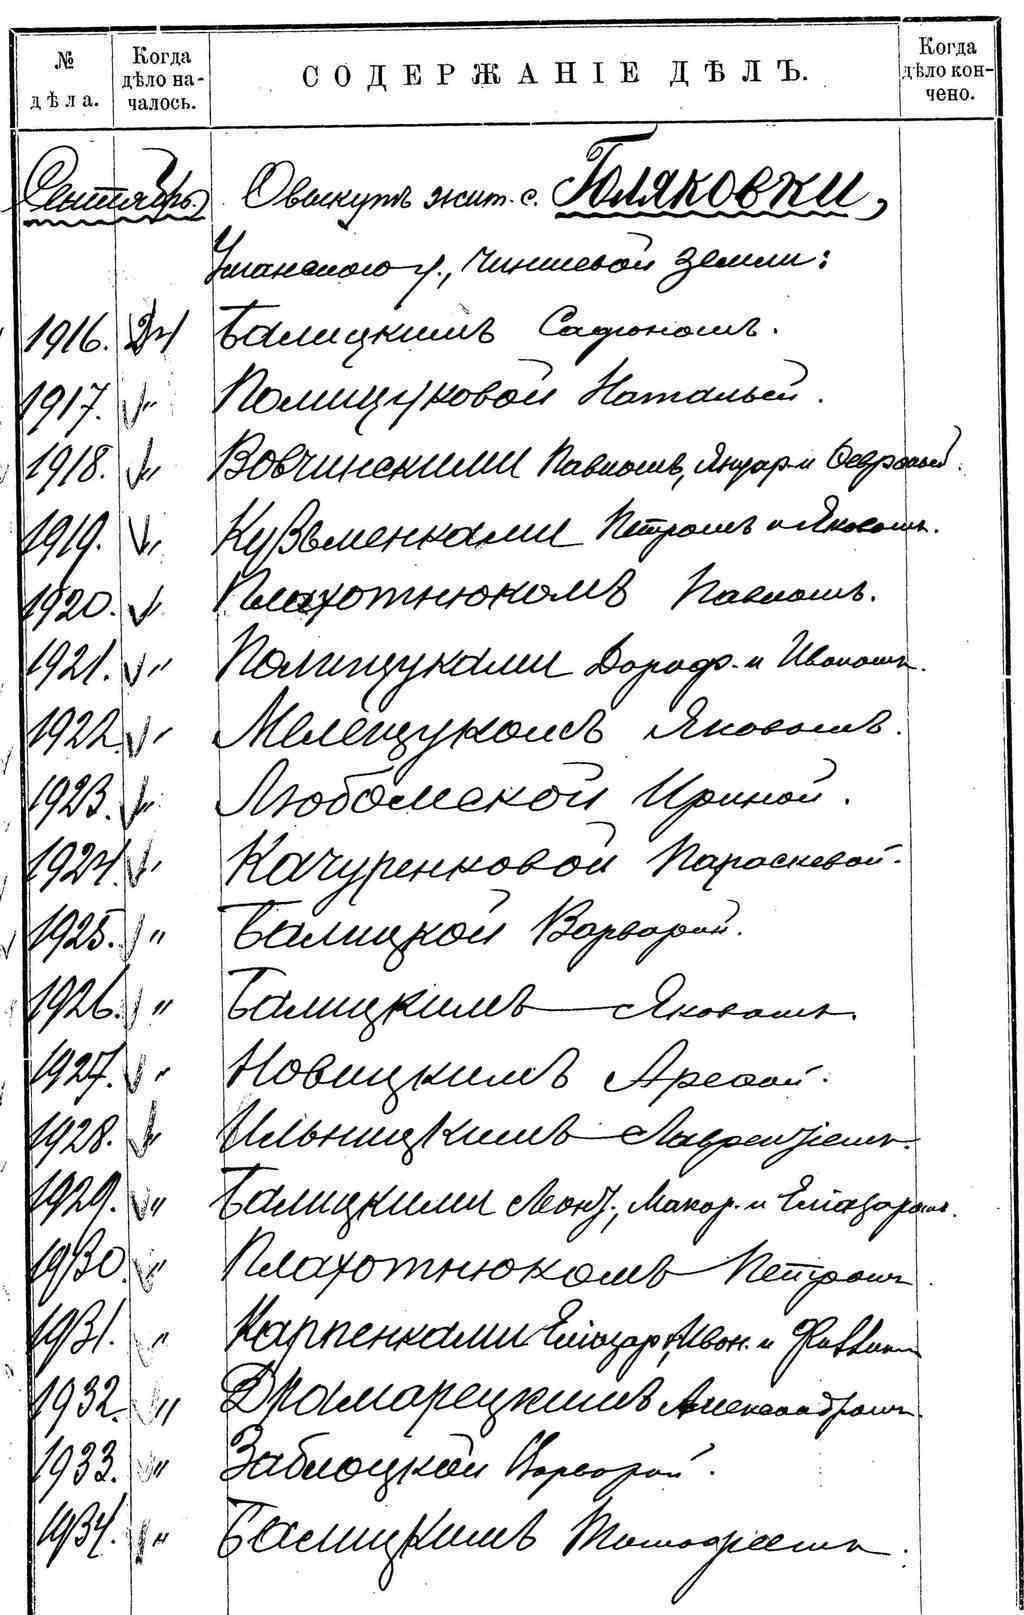 № дѣла.
Когда дѣло началось.
СОДЕРЖАНІЕ ДѢЛЪ.
Когда дѣло кончено.
Сентябрь О выкупѣ жит. с. Поляковки,
Уманскаго у., чиншевой земли:
1916. 24 Балицкимъ Сафономъ.
1917. " Полищуковой Натальей.
1918. " Вовчинскими Павломъ, и
1919. " Кузьменками Петромъ и Яковомъ.
1920. " Плахотнюкомъ Павломъ.
1921. " Полищуками Дороф. и Иваномъ.
1922. " Мелещукомъ Яковомъ.
1923. " Любомской Ириной.
1924. " Качуренковой Параскевой.
1925. " Балицкой Варварой.
1926. " Балицкимъ Яковомъ.
1927. " Новицкимъ Арефой.
1928. " Ильницкимъ Лаврентіемъ.
1929. " Балицкими Леонт., Макар. и Елиазаромъ.
1930. " Плахотнюкомъ Петромъ.
1931. " Карпенками Елиазар., Иван. и
1932. " Драмарецкимъ Александромъ.
1933. " Заблоцкой Варварой.
1934. " Балицкимъ Тимофеемъ.